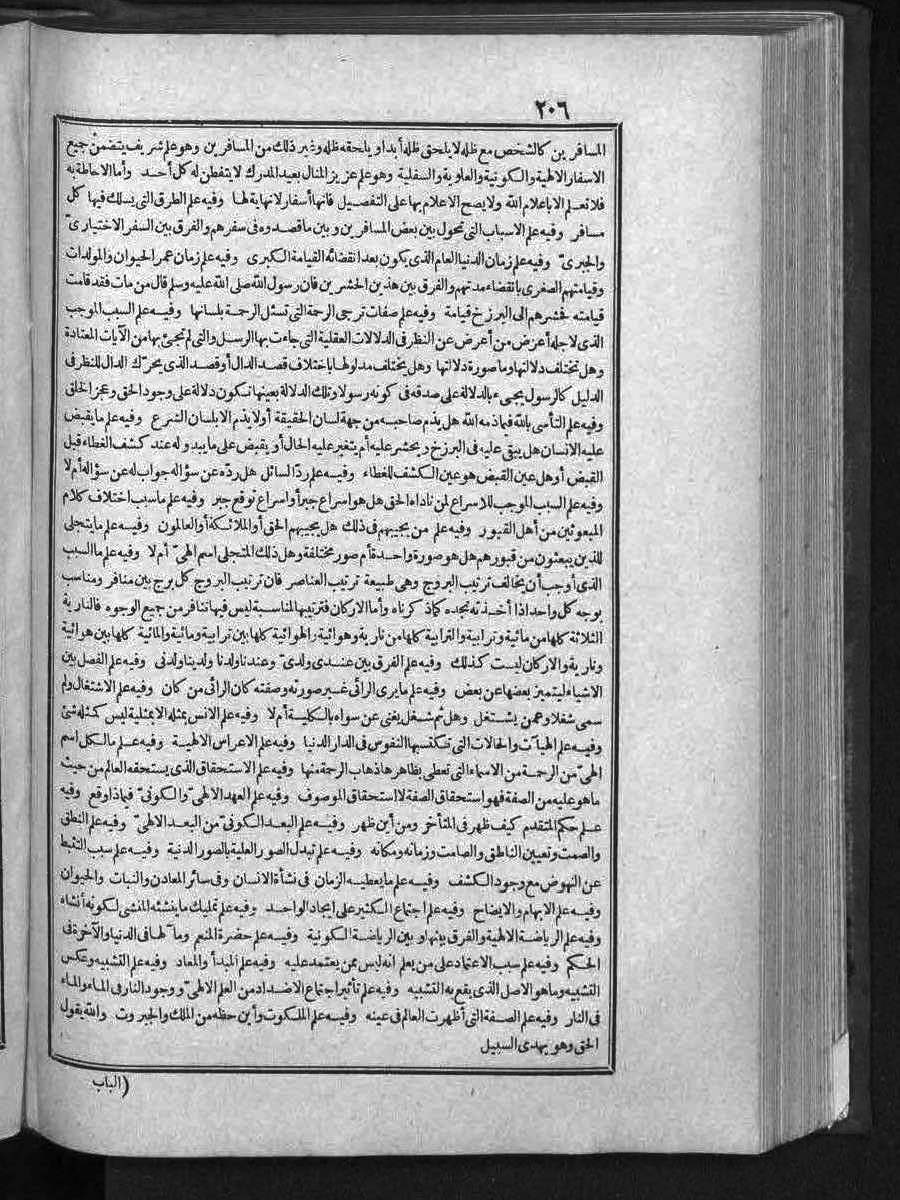 ٢٠٦
المسافرين كالشخص مع ظله لا يلحق ظله أبدا ويلحقه ظله وغير ذلك من المسافرين وهو علم شريف يتضمن جميع
الاسفار الالهية والكونية والعلوية والسفلية وهو علم عزيز المنال بعيد المدرك لا يتفطن له كل أحد وأما الاحاطة به
فلا تعلم الا باعلام الله ولا يصح الاعلام بها على التفصيل فانها أسفار لا نهاية لها وفيه علم الطرق التي يسلك فيها كل
مسافر وفيه علم الاسباب التي تحول بين بعض المسافرين وبين ما قصدوه في سفرهم والفرق بين السفر الاختياريّ
والجبريّ وفيه علم زمان الدنيا العام الذي يكون بعد انقضائه القيامة الكبرى وفيه علم زمان عمر الحيوان والمولدات
وقيامتهم الصغرى بانقضاء مدتهم والفرق بين هذين الحشرين فان رسول الله صلى الله عليه وسلم قال من مات فقد قامت
قيامته فحشرهم الى البرزخ قيامة وفيه علم صفات ترجى الرحمة التي تسئل الرحمة بلسانها وفيه علم السبب الموجب
الذي لاجله أعرض من أعرض عن النظر في الدلالات العقلية التي جاءت بها الرسل والتي لم تجئ بها من الآيات المعتادة
وهل تختلف دلالتها وما صورة دلالتها وهل يختلف مدلولها باختلاف قصد الدال أو قصد الذي يحرّك الدال للنظر في
الدليل كالرسول يجيء بالدلالة على صدقه في كونه رسولا وتلك الدلالة بعينها تكون دلالة على وجود الحق وعجز الخلق
وفيه علم التأسي بالله فيما ذمه الله هل يذم صاحبه من جهة لسان الحقيقة أولا يذم الا بلسان الشرع وفيه علم ما يقبض
عليه الانسان هل يبقى عليه في البرزخ ويحشر عليه أم يتغير عليه الحال أو يقبض على ما يبدو له عند كشف الغطاء قبل
القبض أو هل عين القبض هو عين الكشف للغطاء وفيه علم ردّ السائل هل ردّه عن سؤاله جواب له عن سؤاله أم لا
وفيه علم السبب الموجب للاسراع لمن ناداه الحق هل هو اسراع جبر أو اسراع توقع جبر وفيه علم ما سبب اختلاف كلام
المبعوثين من أهل القبور وفيه علم من يجيبهم في ذلك هل يجيبهم الحق أو الملائكة أو العالمون وفيه علم ما يتجلى
للذين يبعثون من قبورهم هل هو صورة واحدة أم صور مختلفة وهل ذلك المتجلى اسم الهيّ أم لا وفيه علم ما السبب
الذي أوجب أن يخالف ترتيب البروج وهي طبيعة ترتيب العناصر فان ترتيب البروج كل برج بين منافر ومناسب
بوجه كل واحد اذا أخذته تجده كما ذكرناه وأما الاركان فترتيبها المناسبة ليس فيها تنافر من جميع الوجوه فالنارية
الثلاثة كلها من مائية وترابية والترابية كلها من نارية وهوائية والهوائية كلها بين ترابية ومائية والمائية كلها بين هوائية
ونارية والاركان ليست كذلك وفيه علم الفرق بين عندي ولديّ وعندنا ولدنا ولدينا ولدني وفيه علم الفصل بين
الاشياء ليتميز بعضها عن بعض وفيه علم ما يرى الرائي غير صورته وصفته كان الرائي من كان وفيه علم الاشتغال ولم
سمي شغلا وعمن يشتغل وهل ثم شغل يغني عن سواه بالكلية أم لا وفيه علم الانس بمثله الا مثلية ليس كمثله شئ
وفيه علم الهيآت والحالات التي تكتسبها النفوس في الدار الدنيا وفيه علم الاعراس الالهية وفيه علم ما لكل اسم
الهيّ من الرحمة من الاسماء التي تعطى بظاهرها ذهاب الرحمة منها وفيه علم الاستحقاق الذي يستحقه العالم من حيث
ما هو عليه من الصفة فهو استحقاق الصفة لا استحقاق الموصوف وفيه علم العهد الالهيّ والكونيّ فيماذا وقع وفيه
علم حكم المتقدم كيف ظهر في المتأخر ومن أين ظهر وفيه علم البعد الكونيّ من البعد الالهيّ وفيه علم النطق
والصمت وتعيين الناطق والصامت وزمانه ومكانه وفيه علم تبدل الصور العلية بالصور الدنية وفيه علم سبب التثبط
عن النهوض مع وجود الكشف وفيه علم ما يعطيه الزمان في نشأة الانسان وفي سائر المعادن والنبات والحيوان
وفيه علم الابهام والايضاح وفيه علم اجتماع الكثير على ايجاد الواحد وفيه علم تمليك ما ينشئه المنشى لكونه أنشاه
وفيه علم الرياضة الالهية والفرق بينها وبين الرياضة الكونية وفيه علم حضرة المنعم وما لها في الدنيا والآخرة في
الحكم وفيه علم سبب الاعتماد على من يعلم انه ليس ممن يعتمد عليه وفيه علم المبدأ والمعاد وفيه علم التشبيه وعكس
التشبيه وما هو الاصل الذي يقع به التشبيه وفيه علم تأثير اجتماع الاضداد من العلم الالهيّ ووجود النار في الماء والماء
في النار وفيه علم الصفة التي أظهرت العالم في عينه وفيه علم الملكوت وأين حظه من الملك والجبروت والله يقول
الحق وهو يهدى السبيل
(الباب